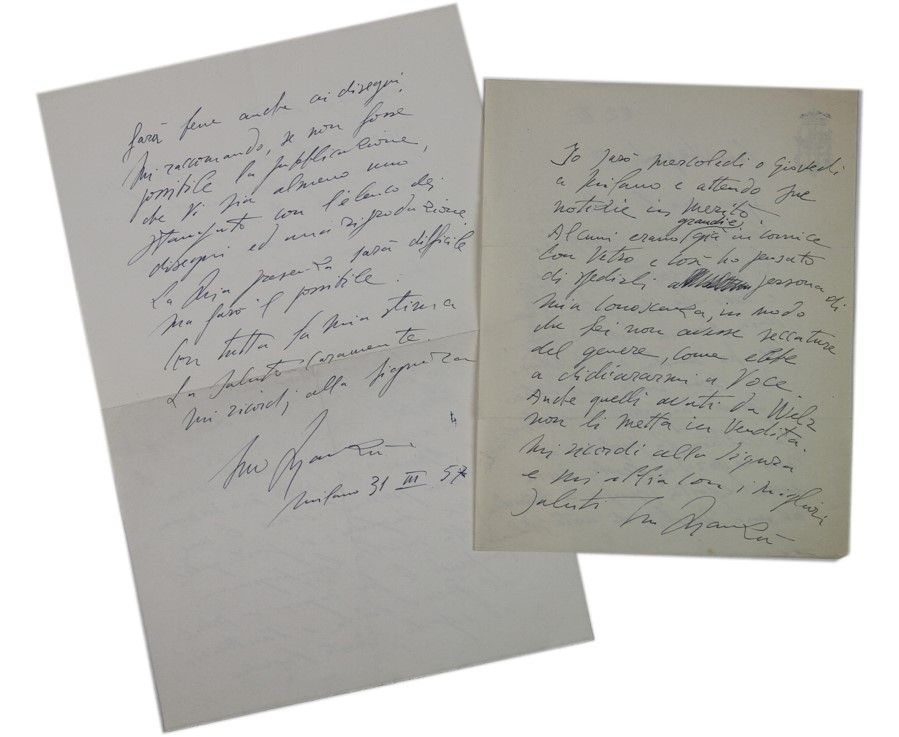 farà bene anche ai disegni.
Mi raccomando, se non fosse
possibile la pubblicazione
che vi sia almeno uno,
stampato con l'elenco dei
disegni ed una riproduzione
La mia presenza sarà difficile
ma farò il possibile.
Con tutta la mia stima
La saluto caramente.
Mi ricordi alla Signora
Suo Manzù
Milano 31 III 57
Io sarò mercoledì o Giovedì
a Milano e attendo sue
notizie in merito.
grandi
Alcuni erano già in cornice
con vetro e così ho pensato
di spedirli persona di
mia conoscenza, in modo
che Lei non avesse seccature
del genere, come ebbe
a dichiararmi a voce
Anche quelli avuti da Welz
non li metta in vendita.
Mi ricordi alla Signora
e mi abbia con i migliori
saluti Suo Manzù